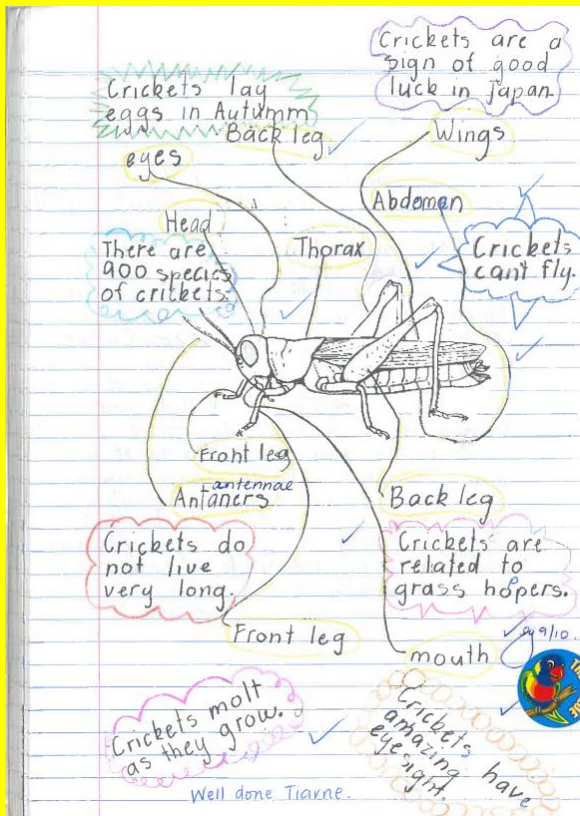 Crickets are a
sign of good
luck in japan.
Crickets lay
eggs in Autumm
Back leg
Wings
eyes
Abdomen
Head
Thorax
There are
900 species
of crickets.
Crickets
can't fly.
Front leg
antennae
Antaners
Back leg
Crickets do
not live
very long.
Crickets are
related to
grass hopers.
p
Front leg
mouth
9/10.
Crickets molt
as they grow.
Crickets
amazing have
eye sight.
Well done Tiarne.